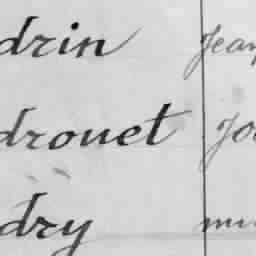 drin Jean
drouet Jo
dry